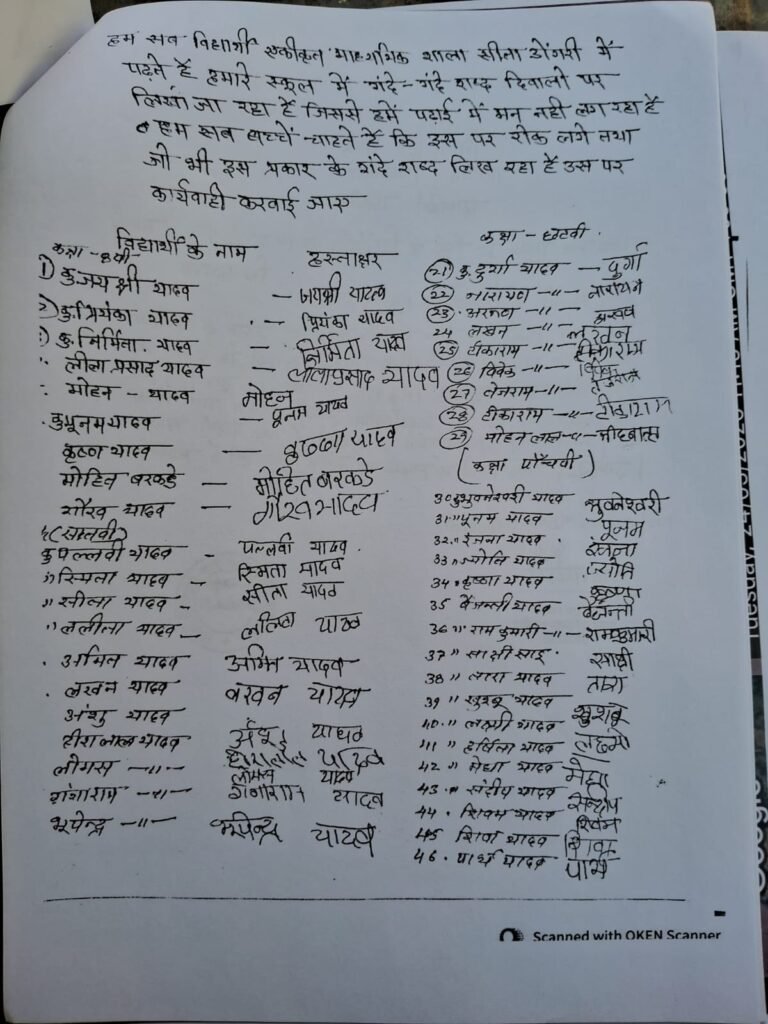 हम सब विद्यार्थी एकीकृत माध्यमिक शाला सीता डोंगरी में
पढ़ते हैं हमारे स्कूल में गंदे-गंदे शब्द दिवालो पर
लिखा जा रहा है जिससे हमें पढ़ाई में मन नही लग रहा है
हम सब बच्चें चाहते हैं कि इस पर रोक लगे तथा
जो भी इस प्रकार के गंदे शब्द लिख रहा है उस पर
कार्यवाही करवाई जाए
विद्यार्थी के नाम हस्ताक्षर
कक्षा - 8वी
1) कु. जयश्री यादव - जयश्री यादव
2) कु. प्रियंका यादव - प्रियंका यादव
कु. निर्मिता यादव - निर्मिता यादव
" लीला प्रसाद यादव - लीलाप्रसाद यादव
मोहन - यादव मोहन
कु पूनम यादव - पूनम यादव
कृष्णा यादव - कृष्णा यादव
मोहित बरकडे - मोहित बरकडे
गौरव यादव - गौरव यादव
(सातवी)
कु पल्लवी यादव - पल्लवी यादव
" स्मिता यादव - स्मिता यादव
" सीता यादव - सीता यादव
" ललीता यादव - ललिता यादव
अमित यादव अमित यादव
लखन यादव लखन यादव
अंशु यादव अंशु यादव
हीरा लाल यादव हीरालाल यादव
लोमस -"- लोमस यादव
गंगाराम -"- गंगाराम यादव
भूपेन्द्र -"- भूपेन्द्र यादव
कक्षा - छठवी
21) कु. दुर्गा यादव - दुर्गा
22 नारायण -"- नारायण
23. -"-
24 लखन -"- लखन
25 टीकाराम -"- टीकाराम
26 विवेक -"- विवेक
27 तेजराम -"-
28 टीकाराम -"- टीकाराम
29 मोहन लाल -"-
(कक्षा पाँचवी)
30 कु भुवनेश्वरी यादव भुवनेश्वरी
31 " पूनम यादव पूनम
32. " रंजना यादव रंजना
33 " ज्योति यादव ज्योति
34 " कृष्णा यादव कृष्णा
35 वैजन्ती यादव वैजन्ती
36 " राम कुमारी -"- रामकुमारी
37 " साक्षी साहू साक्षी
38 " तारा यादव तारा
39 " खुशबू यादव खुशबू
40. " लक्ष्मी यादव लक्ष्मी
41 " हर्षिता यादव
42 " मेघा यादव मेघा
43. " संदीप यादव संदीप
44. शिवम यादव शिवम
45 शिवा यादव शिवा
46. पार्थ यादव पार्थ
Scanned with OKEN Scanner
Tuesday, 24/03/2026
Google